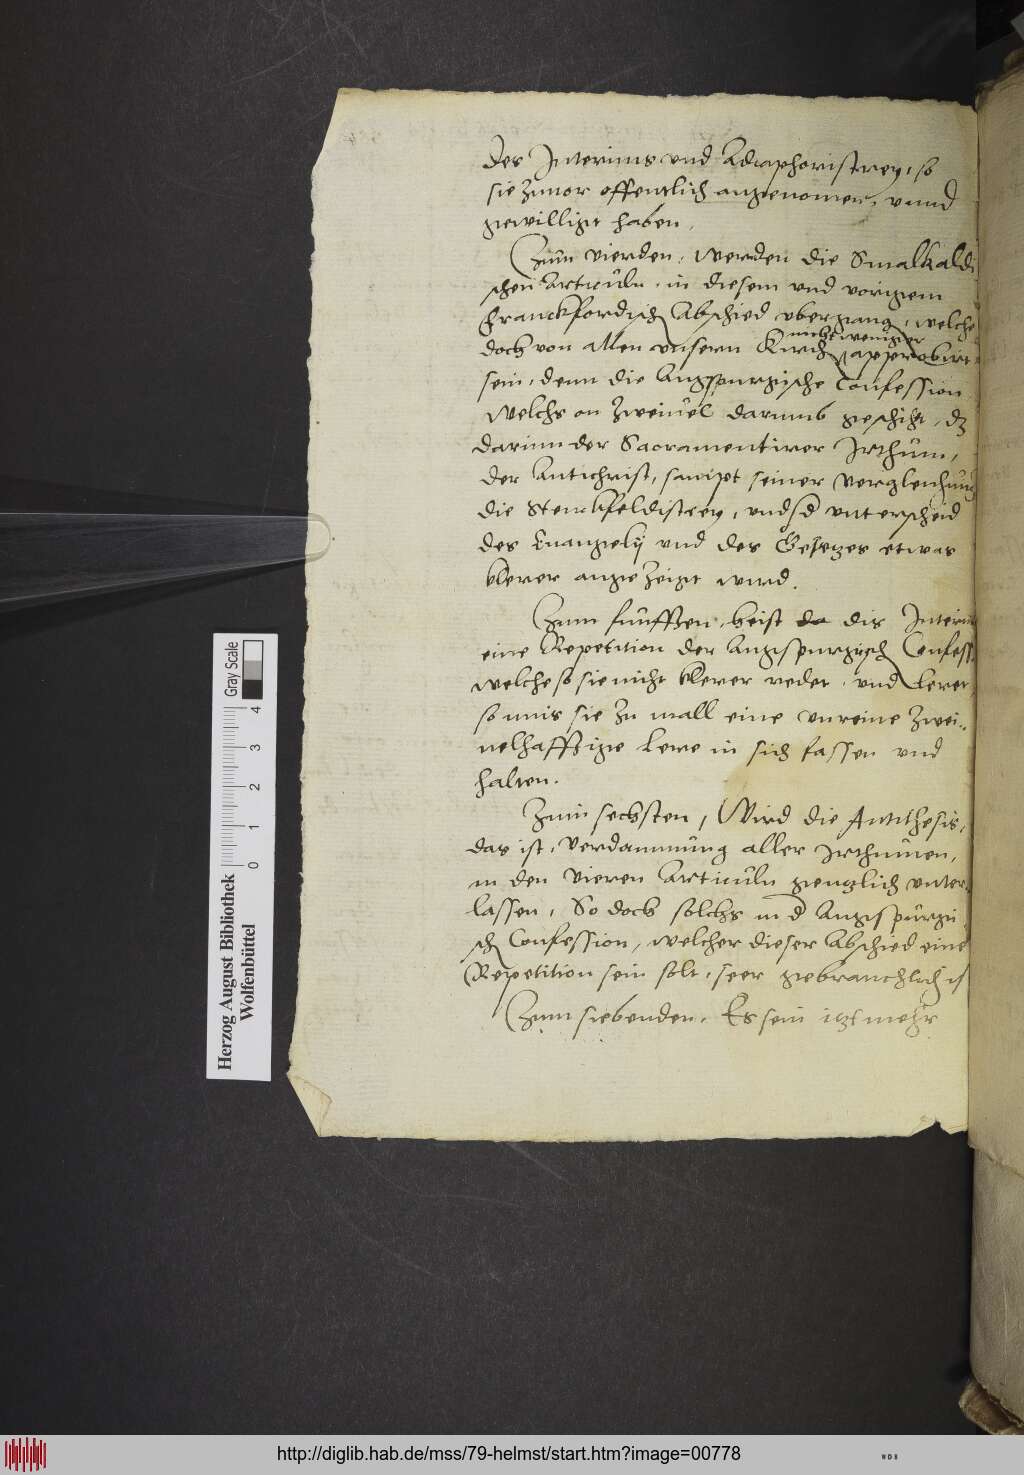 des Interims vnd Adiaphoristrey, so
sie zuuor offentlich angenomen, vnnd
gewilliget haben.
Zum vierden, werden die Smalkaldi
schen Articuln in diesem vnd vorigem
Franckfordisch Abschied vbergang, welche
doch von allen vnsern Kirch nicht weniger approbirt
sein, denn die Augspurgische Confession
Welchs on zweiuel darumb geschicht, dz
darinn der Sacramentirer Irthum,
der Antichrist, sampt seiner vergleichung
die Stenckfeldistrey, vnd d vnterscheid
des Euangelij vnd des Gesetzes etwas
klerer angezeigt wird.
Zum funfften, heist da dis Interim
eine Repetition der Augspurgisch Confess
welche so sie nicht klerer redet vnd leret
so mus sie zu mall eine vnreine zwei-
uelhafftige lere in sich fassen vnd
halten.
Zum sechsten, Wird die Antithesis,
das ist, verdammung aller Irthumen,
in den vieren Articuln gentzlich vnter
lassen, So doch solchs in d Augspurgi
sch Confession, welcher dieser Abschied eine
Repetition sein solt, seer gebreuchlich ist
Zum siebenden, Es sein itzt mehr
Herzog August Bibliothek
Wolfenbüttel
0 1 2 3 4
Gray Scale
http://diglib.hab.de/mss/79-helmst/start.htm?image=00778
WDB